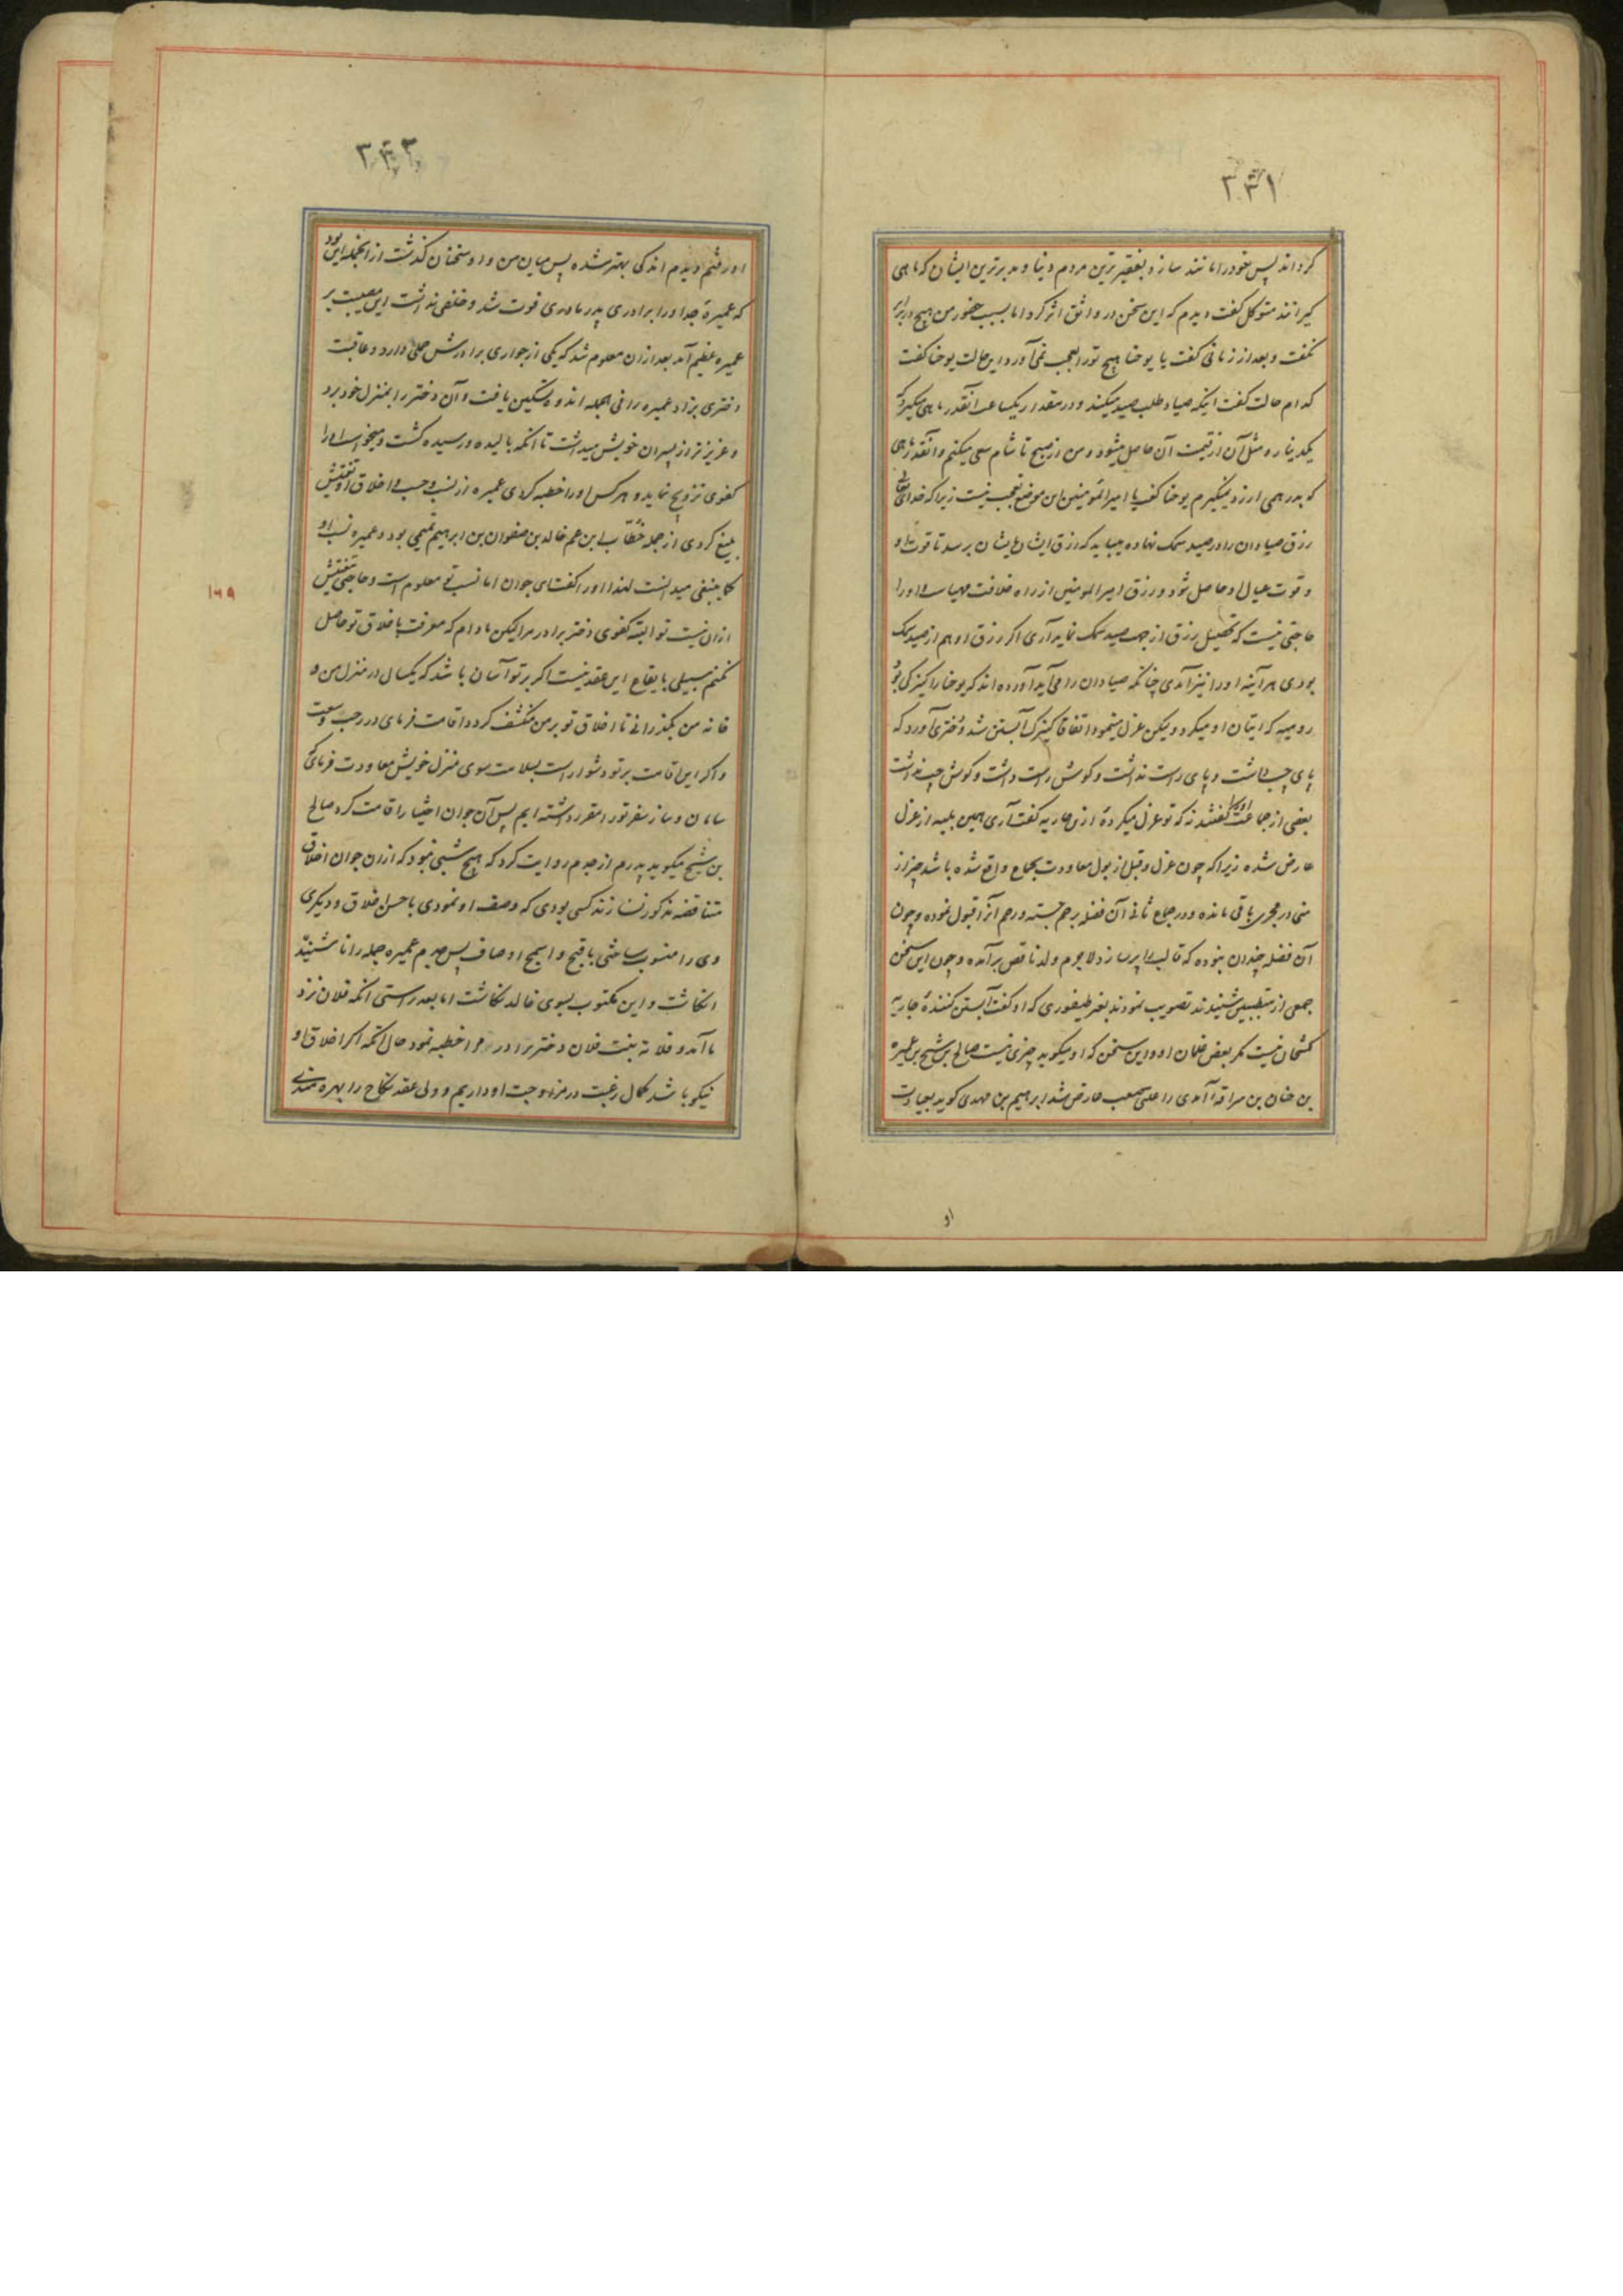 ۳۳۱
کرداند پس خود را مانند سازد بفقیرترین مردم دنیا و مدبرترین ایشان که ماهی
کیرانند متوکل کفت دیدم که این سخن در واثق اثر کرد اما بسبب حضور من هیچ در برابر
نکفت و بعد از زمانی کفت یا یوحنا هیچ تو را بعجب نمی آورد این حالت یوحنا کفت
کدام حالت کفت اینکه صیاد طلب صید میکند و در مقدار یکساعت آنقدر ماهی میکیرد که
یکدینار و مثل آن از قیمت آن حاصل میشود و من از صبح تا شام سعی میکنم و آنقدر ماهی
که بدرهمی ارزد نمیکیرم یوحنا کفت یا امیر المؤمنین این موضع تعجب نیست زیرا که خدای تعالی
رزق صیادان را در صید سمک نهاده میباید که رزق ایشان بایشان برسد تا قوت او
و قوت عیال او حاصل شود و رزق امیر المومنین از راه خلافت مهیاست و او را
حاجتی نیست که تحصیل رزق از جهت صید سمک نماید آری اکر رزق او هم از صید سمک
بودی هر آینه او را نیز آمدی چنانکه صیادان را می آید آورده اند که یوحنا را کنیزکی بود
رومیه که اتیان او میکرد ولیکن عزل مینمود اتفاقا کنیزک آبستن شد و دختری آورد که
پای چپ داشت و پای راست نداشت و کوش راست داشت و کوش چپ نداشت
بعضی از جماعت او را کفتند نه که تو عزل میکردهٔ ازین جاریه کفت آری همین بلیه از عزل
عارض شده زیرا که چون عزل و قبل از بول معاودت بجماع واقع شده باشد چیزی از
منی در مجری باقی مانده و در جماع ثانی آن فضله برحم جسته و رحم آنرا قبول نموده و چون
آن فضله چندان نبوده که قالب را پر سازد لاجرم ولد ناقص برآمده و چون این سخن
جمعی از متطببین شنیدند تصویب نمودند بغیر طیفوری که او کفت آبستن کنندهٔ جاریه
کشحان نیست مکر بعض غلمان او و این سخن که او میکوید چیزی نیست صالح بن شیخ بن عمیره
بن حنان بن سراقه آمدی را علتی صعب عارض شد ابرهیم بن مهدی کوید بعیادت
او
۳۳۲
او رفتم دیدم اندکی بهتر شده پس میان من و او سخنان کذشت از انجمله این بود
که عمیرهٔ جد او را برادری پدر مادری فوت شد و خلفی نداشت این مصیبت بر
عمیره عظیم آمد بعد ازان معلوم شد که یکی از جواری برادرش حملی دارد و عاقبت
دختری بزاد عمیره را فی الجمله اندوه تسکین یافت و آن دختر را بمنزل خود برد
و عزیزتر از پسران خویش میداشت تا انکه بالیده و رسیده کشت و میخواست او را
کفوی تزویج نماید و هر کس او را خطبه کردی عمیره از نسب و حسب و اخلاق او تفتیش
بلیغ کردی از جمله خطّاب ابن عم خالد بن صفوان بن ابرهیم تمیمی بود و عمیره نسب او
کما ینبغی میدانست لهذا او را کفت ای جوان اما نسب تو معلوم است و حاجتی بتفتیش
ازان نیست تو البته کفوی دختر برادر مرا لیکن مادام که معرفت باخلاق تو حاصل
نکنم سبیلی بایقاع این عقد نیست اکر بر تو آسان باشد که یکسال در منزل من و
خانه من بکذرانی تا اخلاق تو بر من منکشف کردد اقامت فرمای در رحب و سعت
و اکر این اقامت بر تو دشوار است بسلامت سوی منزل خویش معاودت فرمای که
سامان و ساز سفر تو را مقرر داشته ایم پس آن جوان اختیار اقامت کرد صالح
بن شیخ میکوید پدرم از جدم روایت کرد که هیچ شبی نبود که ازان جوان اخلاق
متناقضه مذکور نسازند کسی بودی که وصف او نمودی باحسن اخلاق و دیکری
وی را منسوب ساختی باقبح و اسمج اوصاف پس جدم عمیره جمله را ناشنیده
انکاشت و این مکتوب بسوی خالد نکاشت اما بعد راستی انکه فلان نزد
ما آمد و فلانه بنت فلان دختر برادر مرا خطبه نمود حال انکه اکر اخلاق او
نیکو باشد کمال رغبت در مزاوجت او داریم و ولی عقد نکاح را بهره مندی
۱۶۹